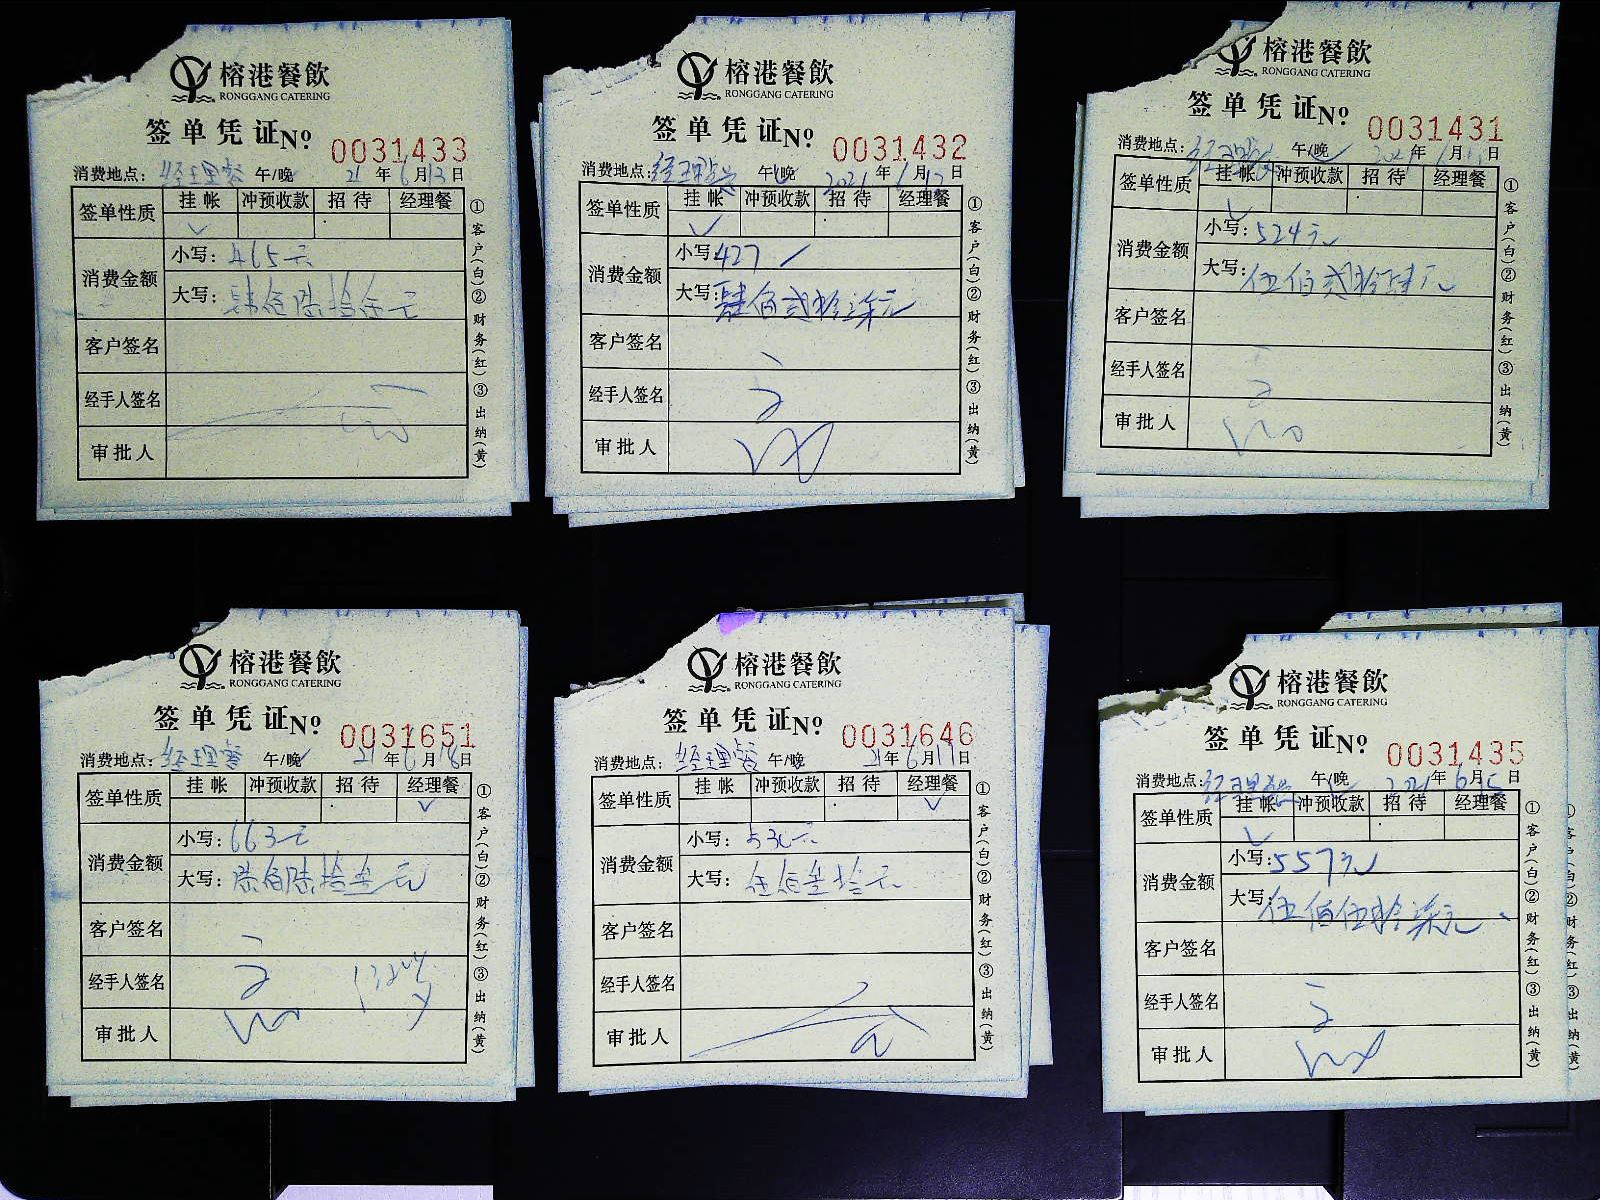 榕港餐飲
RONGGANG CATERING
签单凭证No 0031433
消费地点: 经理餐 午/晚 21年6月13日
签单性质 挂帐 冲预收款 招待 经理餐
✓
消费金额 小写: 465元
大写: 肆佰陆拾伍元
客户签名
经手人签名
审批人
①客户(白)②财务(红)③出纳(黄)
榕港餐飲
RONGGANG CATERING
签单凭证No 0031432
消费地点: 经理餐 午/晚 2021年6月12日
签单性质 挂帐 冲预收款 招待 经理餐
✓
消费金额 小写: 427
大写: 肆佰贰拾柒元
客户签名
经手人签名
审批人
①客户(白)②财务(红)③出纳(黄)
榕港餐飲
RONGGANG CATERING
签单凭证No 0031431
消费地点: 经理餐 午/晚 2021年6月11日
签单性质 挂帐 冲预收款 招待 经理餐
✓
消费金额 小写: 524元
大写: 伍佰贰拾肆元
客户签名
经手人签名
审批人
①客户(白)②财务(红)③出纳(黄)
榕港餐飲
RONGGANG CATERING
签单凭证No 0031651
消费地点: 经理餐 午/晚 21年6月18日
签单性质 挂帐 冲预收款 招待 经理餐
✓
消费金额 小写: 663元
大写: 陆佰陆拾叁元
客户签名
经手人签名
审批人
①客户(白)②财务(红)③出纳(黄)
榕港餐飲
RONGGANG CATERING
签单凭证No 0031646
消费地点: 经理餐 午/晚 21年6月17日
签单性质 挂帐 冲预收款 招待 经理餐
✓
消费金额 小写: 530元
大写: 伍佰叁拾元
客户签名
经手人签名
审批人
①客户(白)②财务(红)③出纳(黄)
榕港餐飲
RONGGANG CATERING
签单凭证No 0031435
消费地点: 经理餐 午/晚 2021年6月15日
签单性质 挂帐 冲预收款 招待 经理餐
✓
消费金额 小写: 557元
大写: 伍佰伍拾柒元
客户签名
经手人签名
审批人
①客户(白)②财务(红)③出纳(黄)